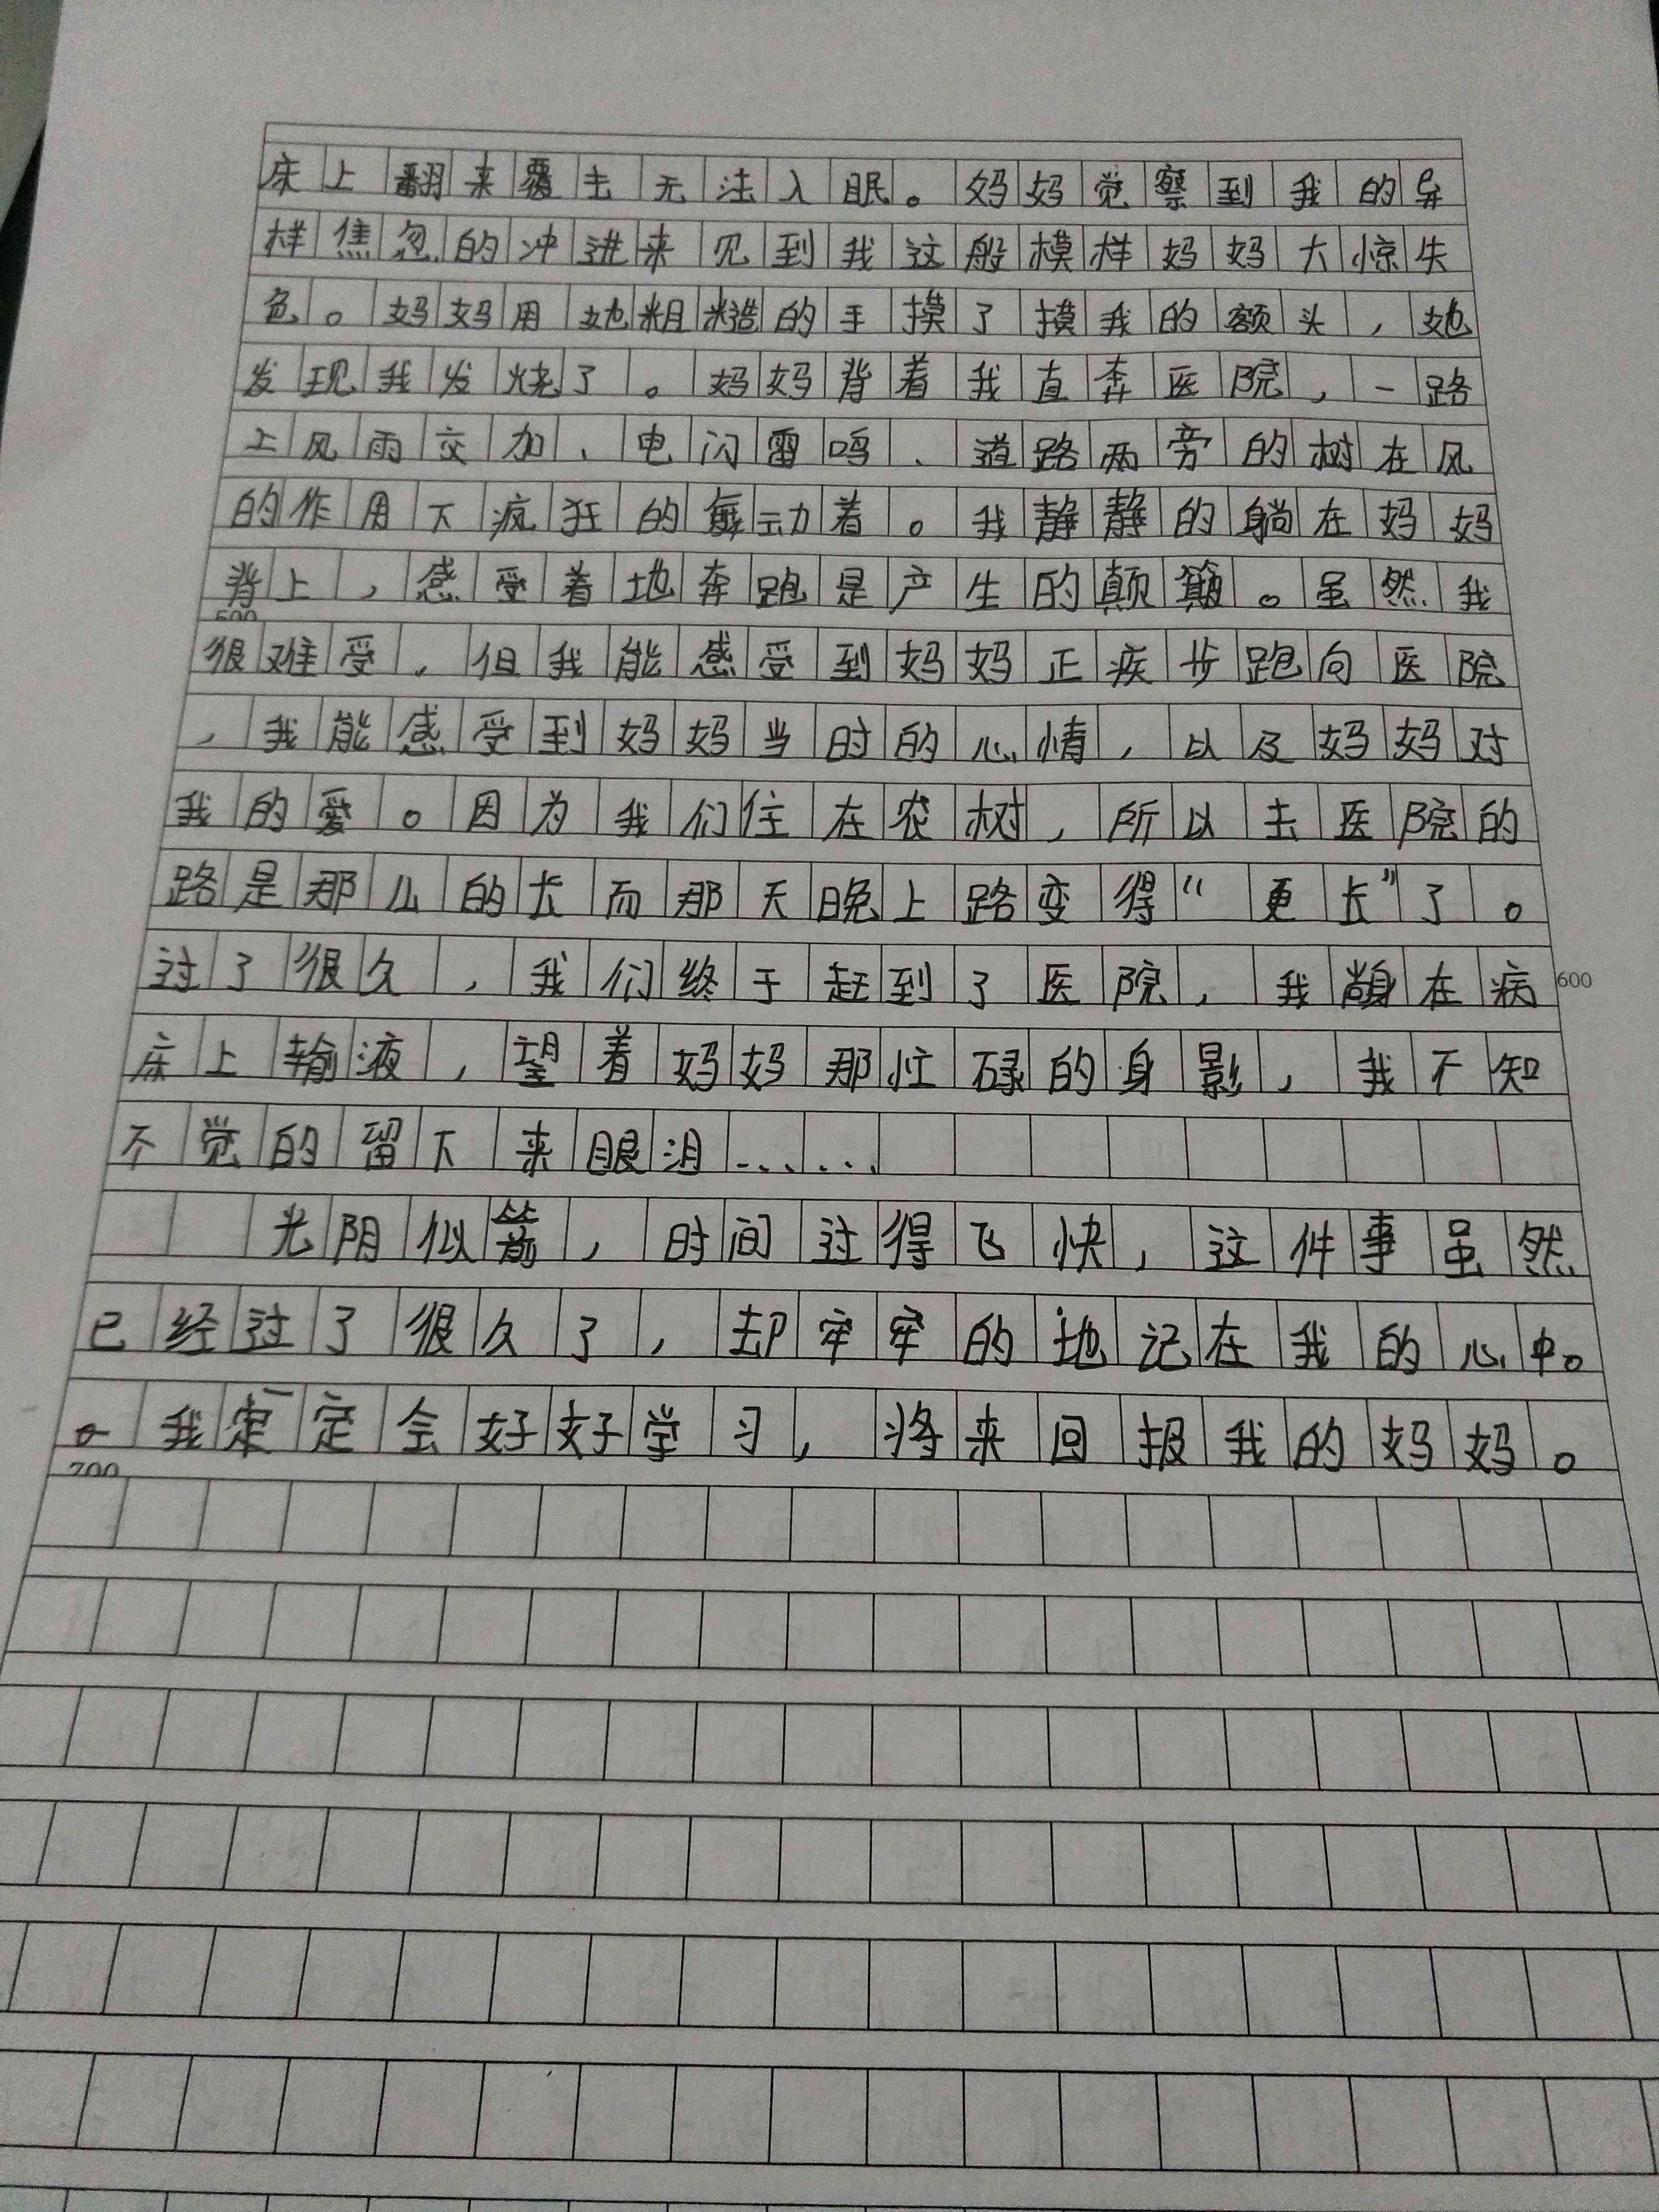 床上翻来覆去无法入眠。妈妈觉察到我的异
样焦忽的冲进来见到我这般模样妈妈大惊失
色。妈妈用她粗糙的手摸了摸我的额头，她
发现我发烧了。妈妈背着我直奔医院，一路
上风雨交加、电闪雷鸣、道路两旁的树在风
的作用下疯狂的舞动着。我静静的躺在妈妈
背上，感受着地奔跑是产生的颠簸。虽然我
500
很难受，但我能感受到妈妈正疾步跑向医院
，我能感受到妈妈当时的心情，以及妈妈对
我的爱。因为我们住在农树，所以去医院的
路是那么的长而那天晚上路变得“更长”了。
过了很久，我们终于赶到了医院，我躺在病
600
床上输液，望着妈妈那忙碌的身影，我不知
不觉的留下来眼泪……
光阴似箭，时间过得飞快，这件事虽然
已经过了很久了，却牢牢的地记在我的心中。
。我一定会好好学习，将来回报我的妈妈。
700